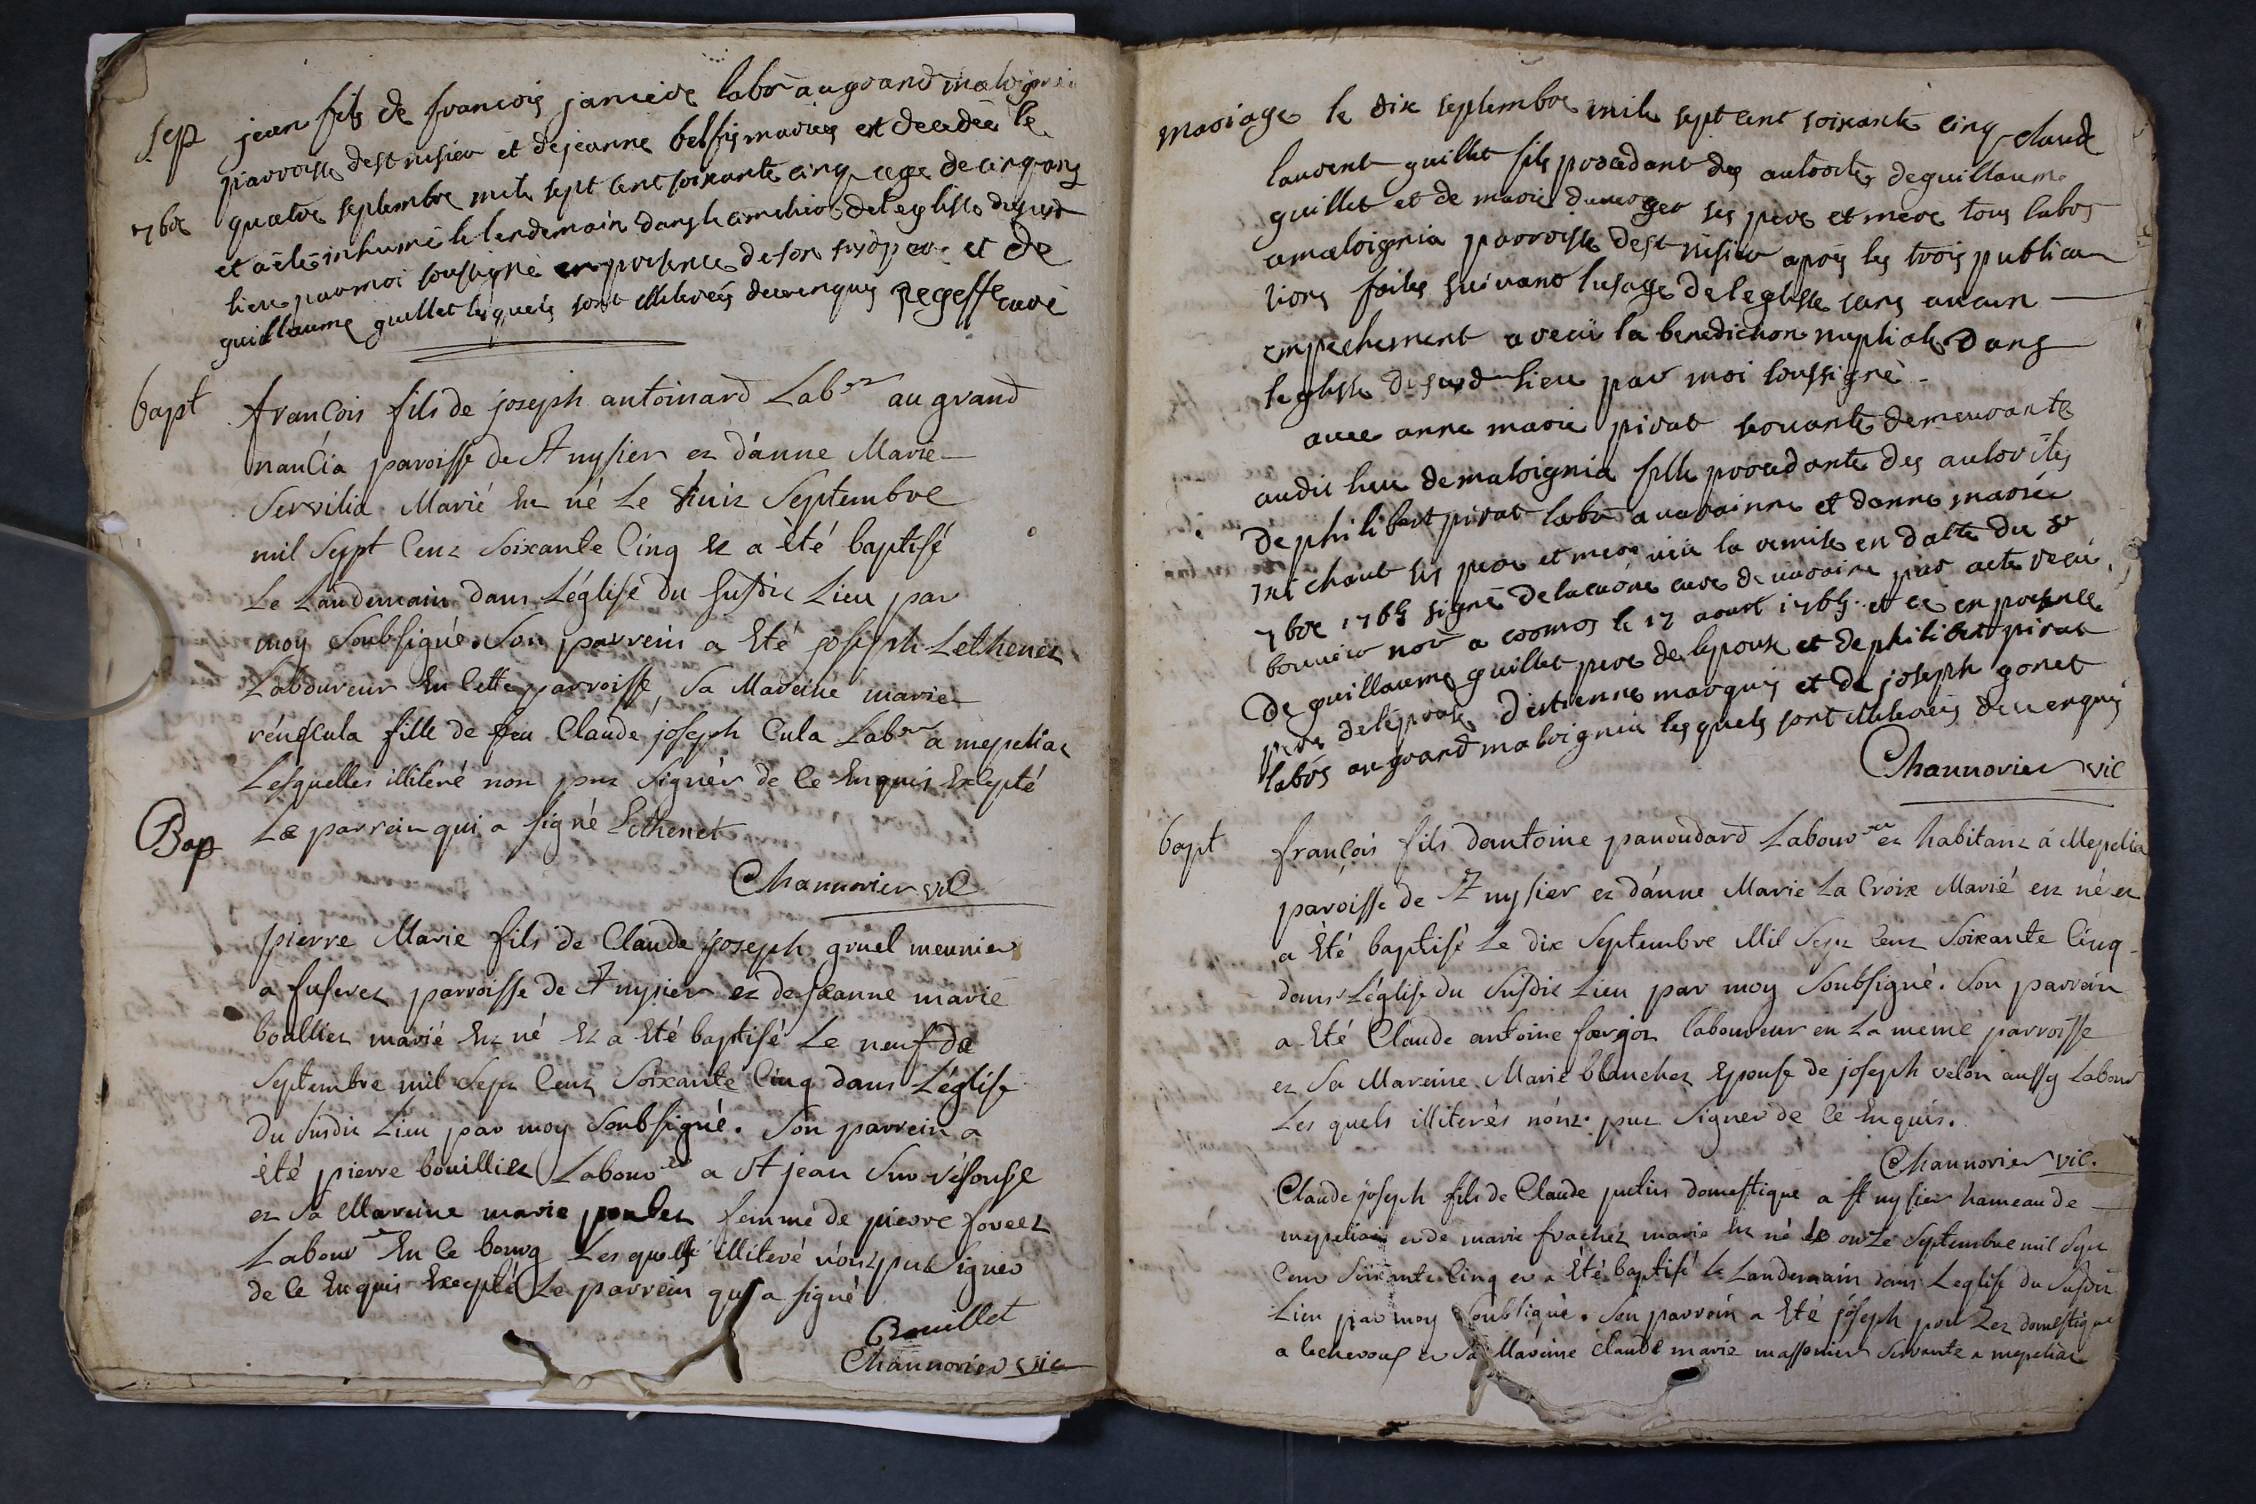 sep jean fils de francois janiere labr au grand malvignia
parroisse de st nisier et de jeanne belfis mariés est decedée le
7bre quatre septembre mile sept cent soixante cinq age de cinq ans
et a ète inhumé le lendemain dans le cimetiere de l'eglisse dusus
lieu par moi soussigné en presence de son susd pere et de
guillaume guillet lesquels sont illiterés de ce enquis curé
bapt francois fils de joseph antoinard Labr au grand
nancia paroisse de St nysier ez d'anne Marie
Servilia Marié Ez né Le huiz Septembre
mil Sept Cenz Soixante Cinq Ez a èté baptisé
Le Landemain dans L'église du Susdiz Lieu par
moy Soubsigné. Son parrein a Eté joseph Lethenez
Laboureur En Cette parroisse, Sa Mareine marie
fille de feu Claude joseph Cula Labr a mepeliaz
Lesquelles illiteré non puz Signér de Ce Enquis Excepté
Le parrein qui a signé Lethenet
Chaunovier vic
Bap
pierre Marie fils de Claude joseph gruel meunier
a fuserez parroisse de St nysier ez de jeanne marie
boalliez marié Ez né Ez a Eté baptisé Le neuf de
Septembre mil Sepz Cenz Soixante Cinq dans L'église
du Susdiz Lieu par moy Soubsigné. Son parrein a
èté pierre bouilliez Labour a St jean Sur résouse
ez Sa Mareine marie femme de pierre foreez
Labour En Ce bourg Lesquels illiteré n'onz pu Signér
de Ce Enquis Excepté Le parrein qui a signé
Bouillet
Chaunovier vic
mariage le dix septembre mile sept cent soixante cinq claude
laurent guillet fils procedant des autorites de guillaume
guillet et de marie ses pere et mere tous labrs
a malvignia parroisse de st nisier après les trois publica
tions faites suivant lusage de leglisse sans aucun
empechement a recu la benediction nuptiale dans
leglisse du susd lieu par moi soussigné
avec anne marie pirat servante demeurante
audit lieu de malvignia fille procedante des autorités
de philibert pirat labr a varainne et danne marie
michaut ses pere et mere vu la remise en datte du 8
7bre 1765 signé curé de varaine par acte recu
not a cormos le 17 aout 1765 et ce en presence
de guillaume guillet pere de lepoux et de philibert pirat
pere de l'épouse d'estienne marquis et de joseph gonet
labrs au grand malvignia lesquels sont illiterés de ce enquis
Chaunovier vic
bapt françois fils d'antoine panoudard Labour ez habitanz à Mepelia
paroisse de St nysier ez d'anne Marie La Croix Marié ez né ez
a Eté baptisé Le dix Septembre Mil Sepz Cenz Soixante Cinq
dans L'église du Susdiz Lieu par moy Soubsigné. Son parrein
a Eté Claude antoine laboureur en La meme parroisse
ez Sa Mareine Marie blanchez Epouse de joseph vélon aussy Labour
Les quels illiterés n'onz puz Signer de Ce Enquis.
Chaunovier vic.
Claude joseph fils de Claude putin domestique a St nysier hameau de
mepeliaz ez de marie frachez marié Ez né Le onze Septembre mil Sepz
Cenz Soixante Cinq ez a Eté baptisé Le Landemain dans Leglise du Susdiz
Lieu par moy Soubsigné. Son parrein a Eté joseph domestique
a ez Sa Mareine Claude marie massonier Servante a mepeliaz